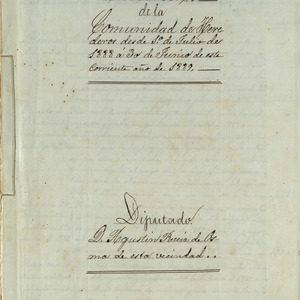 de la
Comunidad de Here
deros desde 1º de Julio de
1888 á 30 de Junio de este
corriente año de 1889.
Diputado
D. Agustin Ruiz de Os
ma de esta vecindad..